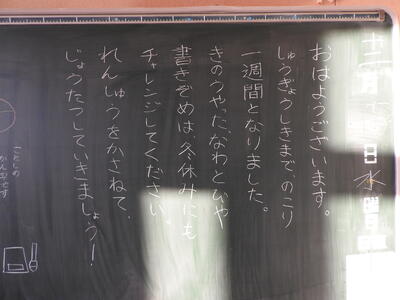 十二月十七日水曜日
おはようございます。
しゅうぎょうしきまで、のこり
一週間となりました。
きのうやった、なわとびや
書きぞめは、冬休みにも
チャレンジしてください。
れんしゅうをかさねて、
じょうたつしていきましょう!
ことしの
かん字です